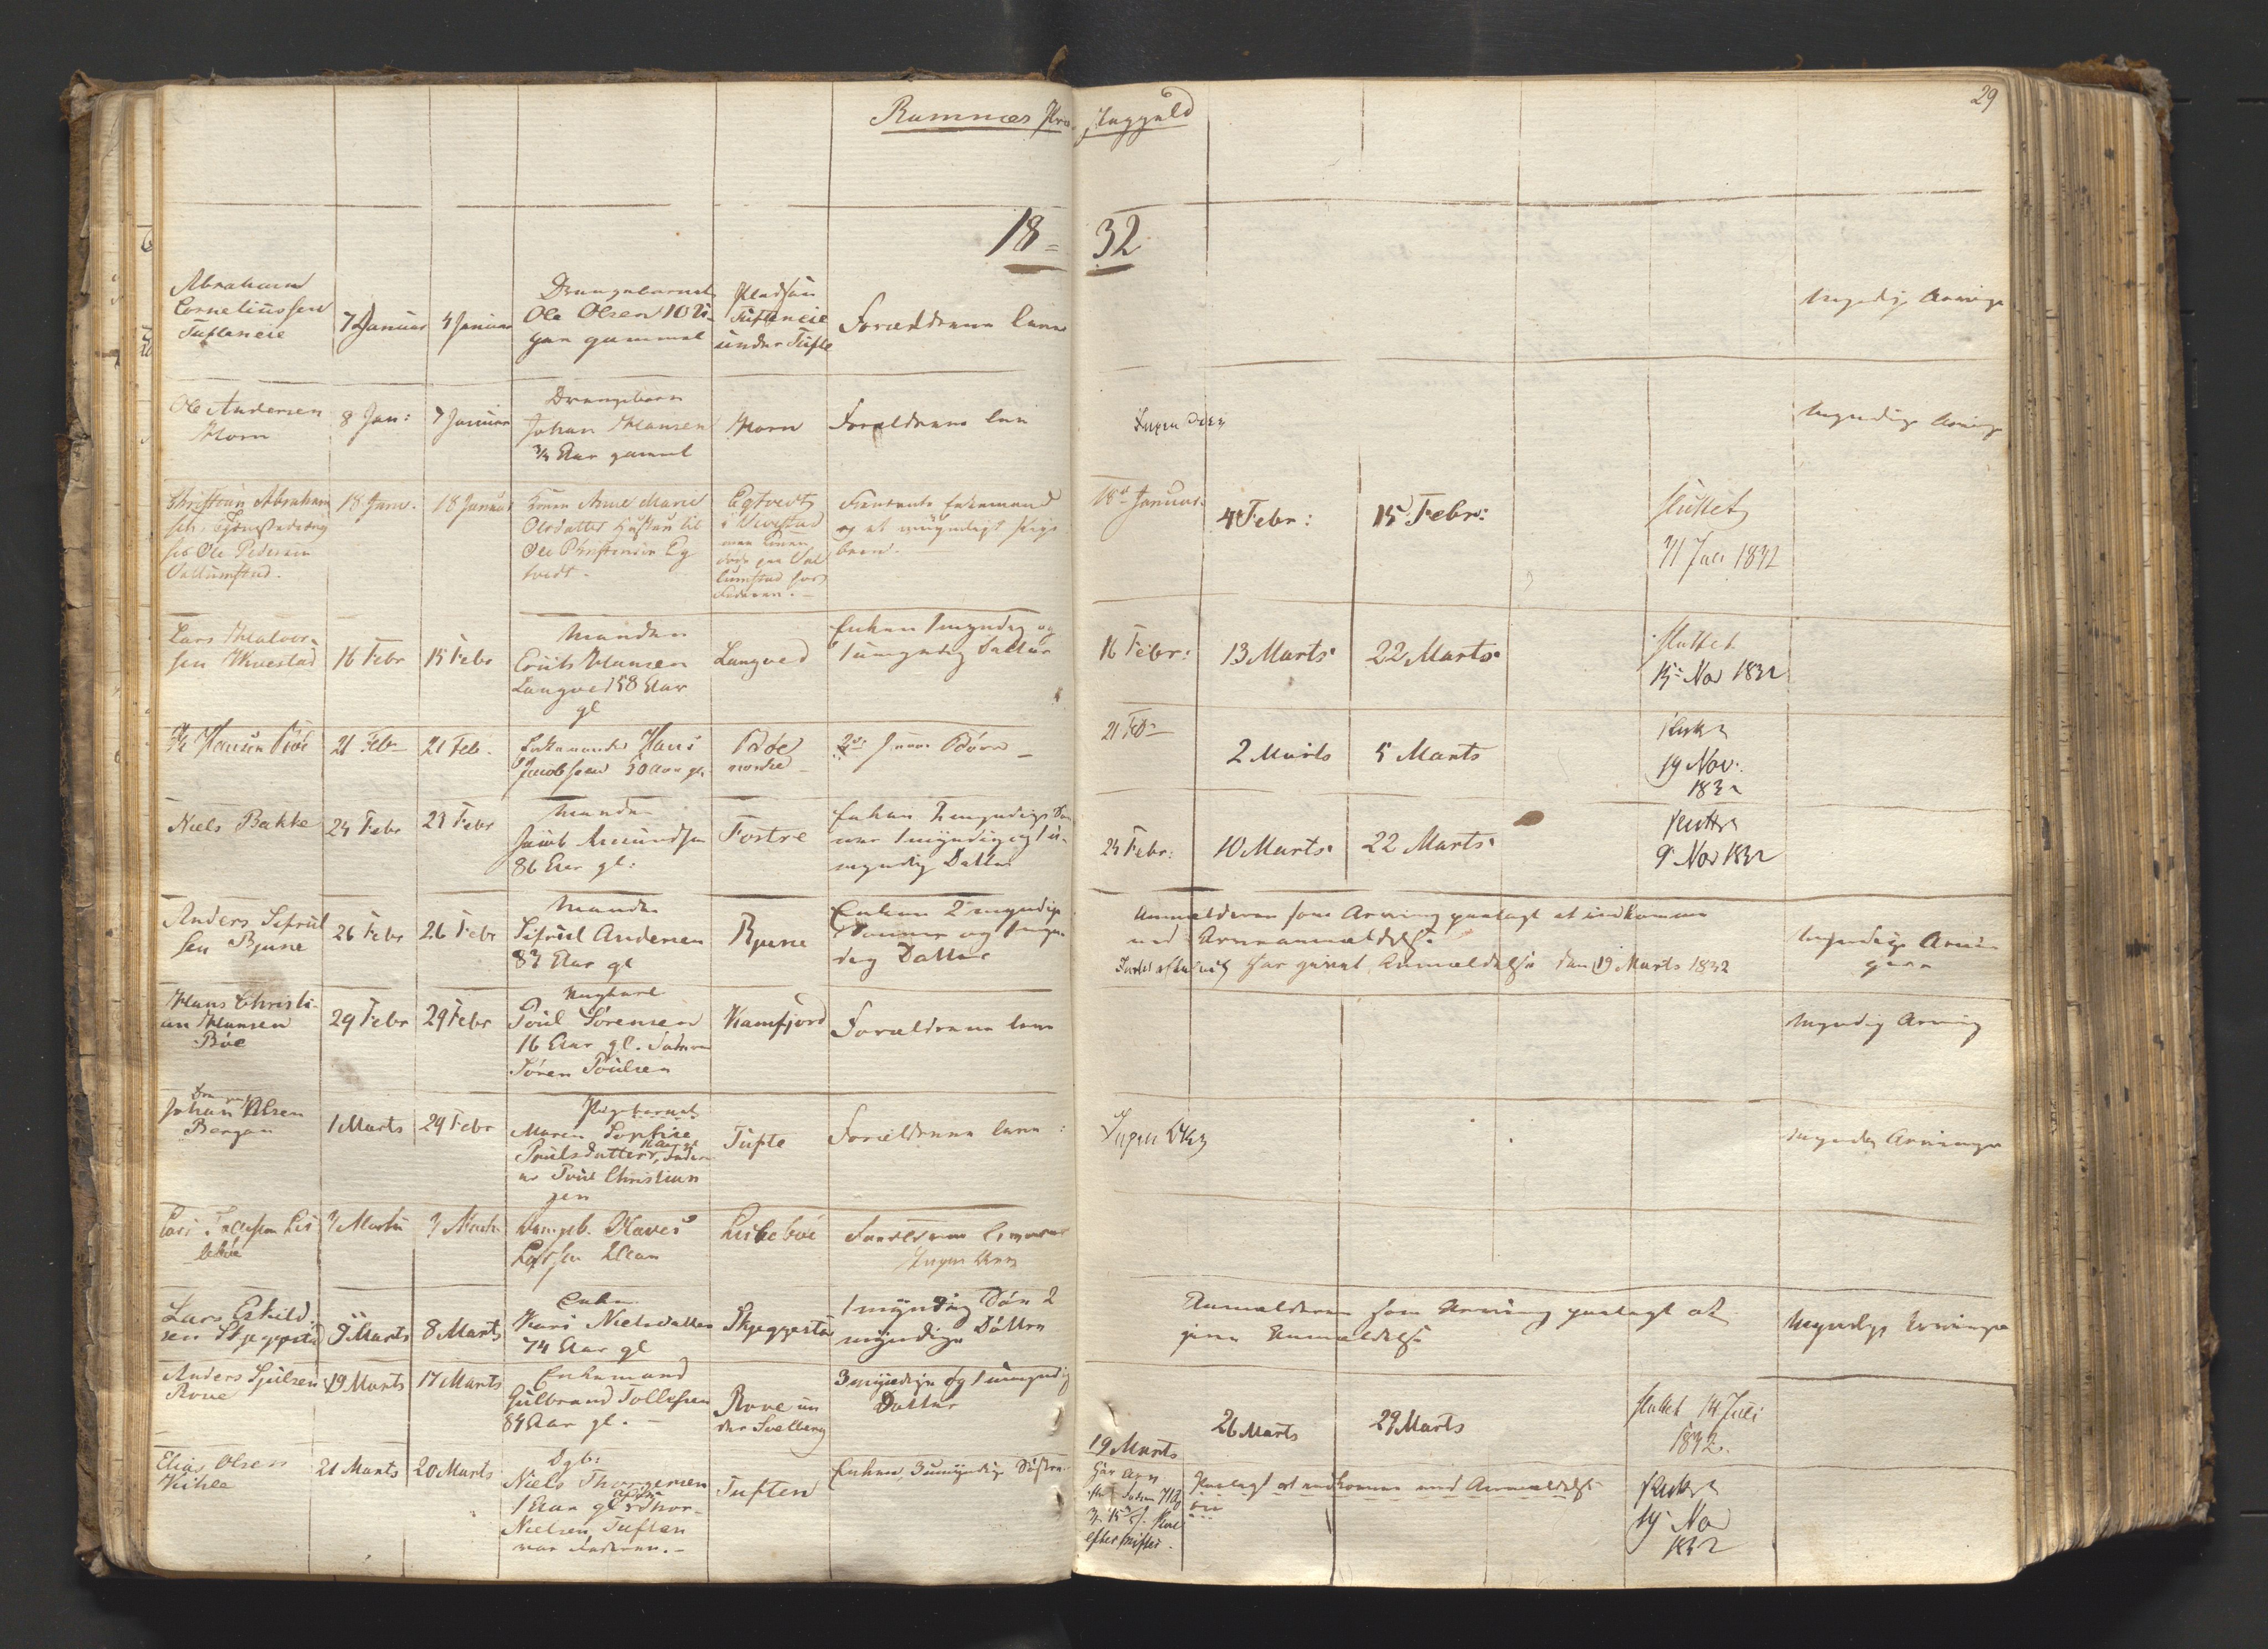 29
Ramnæs Præ- stegjeld
18= 32
Abraham
Corneliussen
Tufteneie
7 Januar
4 Januar
Drengebarnet
Ole Olsen 10 U-
ger gammel
Pladsen
Tufteneie
under Tufte
Forældrene leve
Myndige Arvinge
Ole Andersen
Horn
8 Jan:
7 Januar
Drengebarn
Johan Hansen
3/4 Aar gammel
Horn
Forældrene leve
Ingen Arv
Myndige Arvinge
Christian Abraham
sen
for Ole Pedersen
Vallumstad.
18 Janr.
18 Januar
Konen Anne Marie
Olesdatter Hustru til
Ole Christensen Eg
tvedt.
Egtvedt
i Vivestad
men Konen
døde paa Val
lumstad hos
Faderen.
Enkemand
og et umyndigt Pige
barn.
18de Januar.
4 Febr:
15 Febr:
sluttet
31 Juli 1832
Lars Halvor-
sen Hvestad
16 Febr
15 Febr
Manden
Hansen
Langved 58 Aar
gl
Langved
Enken 1 myndig og
1 umyndig Datter
16 Febr:
13 Marts
22 Marts
sluttet
15 Nov 1832
Hansen Bøe
21 Feb
21 Feb.
Enkemanden Hans
Jacobsen 50 Aar gl.
Bøe
nordre
Børn
21 Feb
2 Marts
5 Marts
sluttet
19 Nov.
1832
Niels Bakke
24 Febr
23 Febr
Manden
Jacob Amundsen
86 Aar gl:
Fostre
Enken 2 myndige Søn
ner 1 myndig og 1 u-
myndig Datter
24 Febr:
10 Marts
22 Marts
sluttet
9 Nov 1832
Anders Sifuul
sen Bjune
26 Febr
26 Febr
Manden
Sifuul Andersen
83 Aar gl
Bjune
Enken 2 myndige
Sønner og 1 myn-
dig Datter
Anmelderen som Arving paalagt at indkomme
med Arveanmeldelse
har givet Anmeldelse den 19 Marts 1832
Myndige Arvin
ger
Hans Christi-
an Hansen
Bøe
29 Febr
29 Febr
Ungkarl
Poul Sørensen
16 Aar gl. Faderen
Søren Poulsen
Kamfjord
Forældrene leve
Myndig Arving
Johan Olsen
Bergan
1 Marts
29 Febr
Pigebarnet
Maren Sophie
Poulsdatter, Fader
er Poul Christian
sen
Tufte
Forældrene leve
Ingen Arv
Myndig Arvinger
Lis
lebøe
3 Marts
3 Marts
Drengeb. Olaves
Lislebøe
Forældrene lever
Ingen Arv
Lars Eskild-
sen Skjeggestad
9 Marts
8 Marts
Enken
Kari Nielsdatter
74 Aar gl
Skjeggestad
1 myndig Søn 2
myndige Døttre
Anmelderen som Arving paalagt at
give Anmeldelse
Myndige Arvinge
Anders Sjulsen
Rove
19 Marts
17 Marts
Enkemand
Gulbrand Tollefsen
84 Aar gl.
Rove un
der Svelberg
3 myndige og 1 umyndig
Datter
19 Marts
26 Marts
29 Marts
sluttet 14 Juli
1832.
Elias Olsen
21 Marts
20 Marts
Dgb:
Niels Thorgersen
1 Aar gl Thor
Nielsen Tuften
var Faderen.
Tuften
Enken, 3 umyndige Søstre
har Arv
efter Faderen
Paalagt at indkomme med Anmeldelse
sluttet
19 Nov
1832